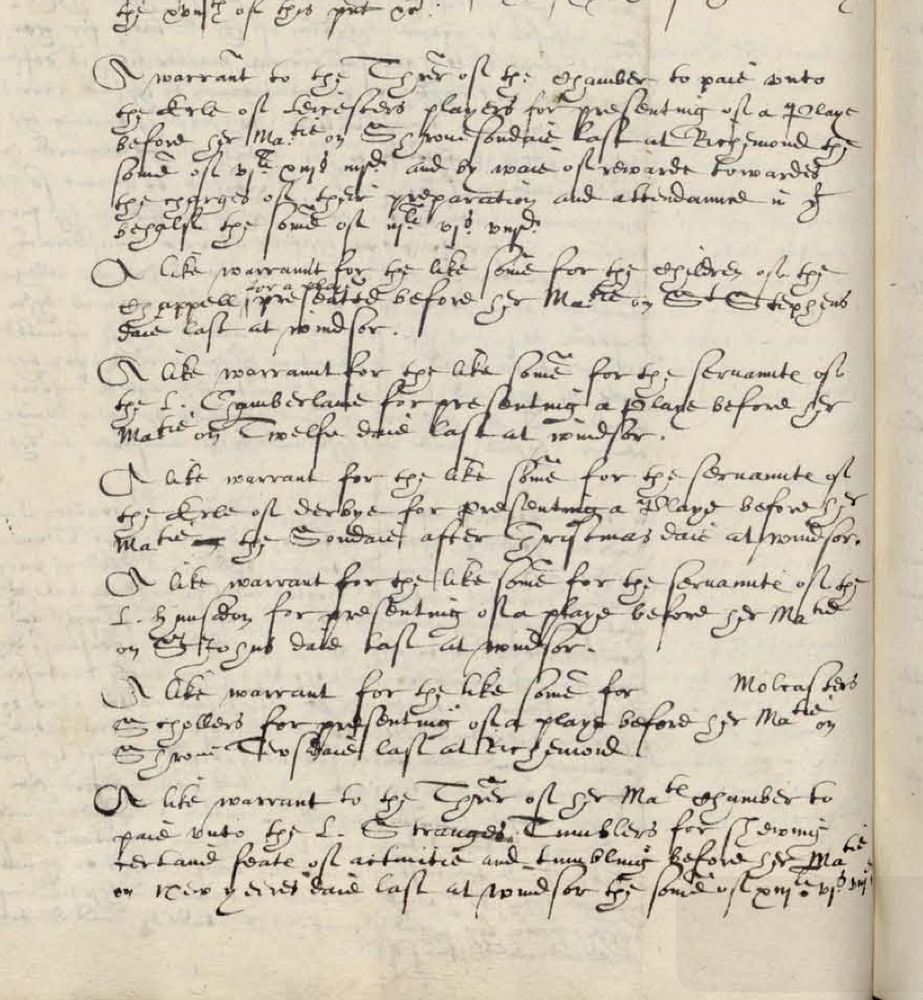 the xviijth of this pnt xc.
A warrant to the Threr of the Chamber to paie vnto
the Erle of Leicesters players for presenting of a Playe
before her Matie on Shrovesondaie last at Richemond the
some of vjli xiijs iiijd and by waie of rewarde towardes
the charges of their preparation and attendaunce in yt
behalf the some of iijli vjs viijd.
A like warraunt for the like some for the Children of the
Chappell for a play presented before her Matie on St Stephens
daie last at windsor.
A like warraunt for the like some for the servaunte of
the L. Chamberlane for presenting a Playe before her
Matie on Twelfe daie last at windsor.
A like warrant for the like some for the servaunte of
the Erle of derbye for presenting a Playe before her
Matie the Sondaie after Christmas daie at windsor.
A like warrant for the like some for the servaunte of the
L. Hunsdon for presenting of a playe before her Matie
on St Johns daie last at windsor.
A like warrant for the like some for Molcasters
Schollers for presenting of a playe before her Matie on
Shrove Tewsdaie last at Richemond
A like warrant to the Threr of her Mate Chamber to
paie vnto the L. Stranges Tumblers for shewing
certaine feate of actiuitie and tumbling before her Matie
on new yeres daie last at windsor the some of xiijli vjs viijd